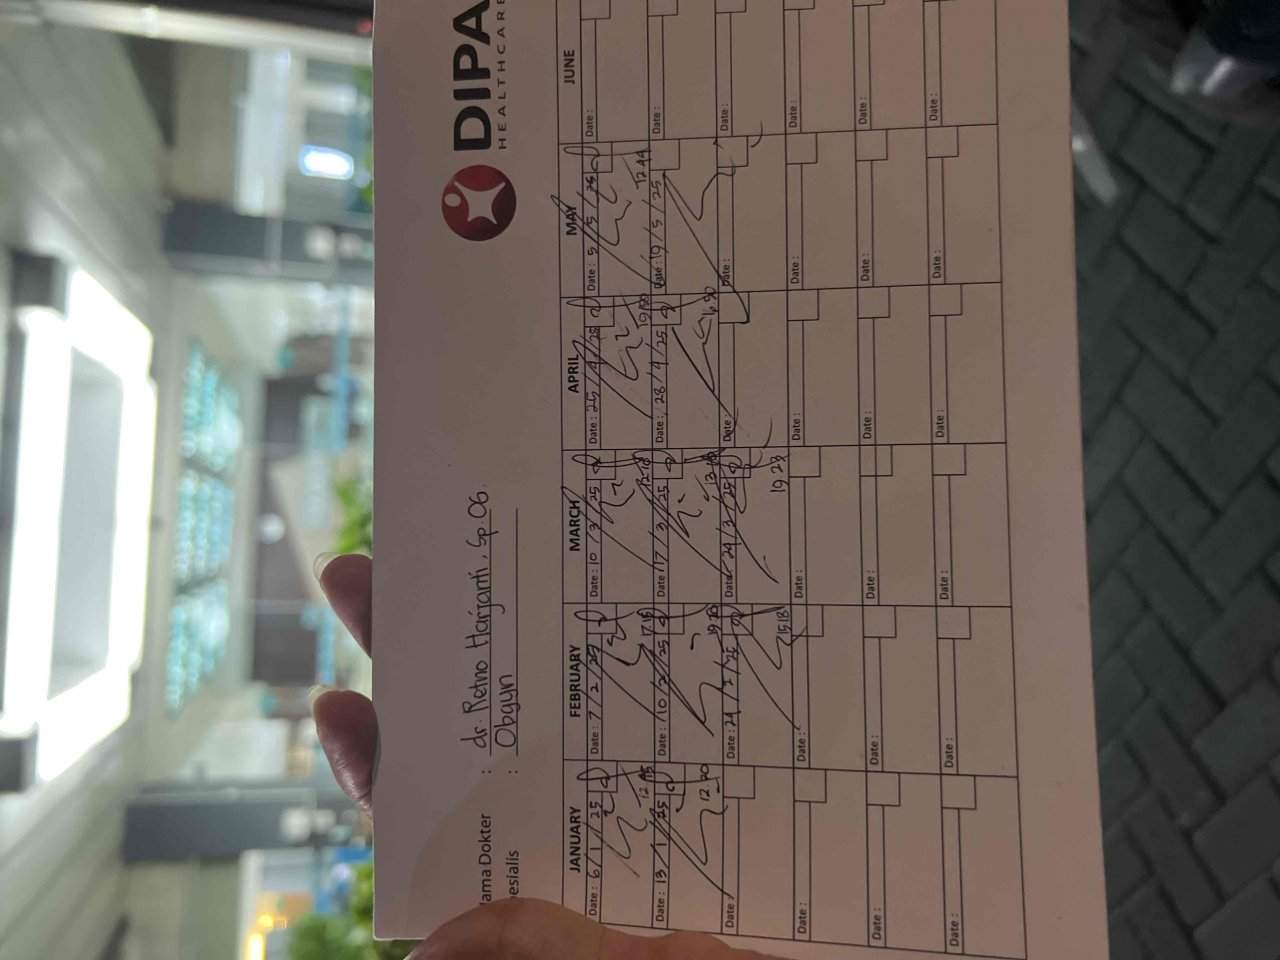 DIPA
HEALTHCARE
ama Dokter : dr. Retno Harjanti, Sp.OG
esialis : Obgyn
JANUARY FEBRUARY MARCH APRIL MAY JUNE
Date : 6/1/25 Date : 7/2/25 Date : 10/3/25 Date : 25/4/25 Date : 5/5/25 Date :
12.45 17.15 12.18 12.44
Date : 13/1/25 Date : 10/2/25 Date : 17/3/25 Date : 28/4/25 Date : 19/5/25 Date :
12.20
Date : Date : 24/2/25 Date : 24/3/25 Date : Date : Date :
15.18 19.23
Date : Date : Date : Date : Date : Date :
Date : Date : Date : Date : Date : Date :
Date : Date : Date : Date : Date : Date :